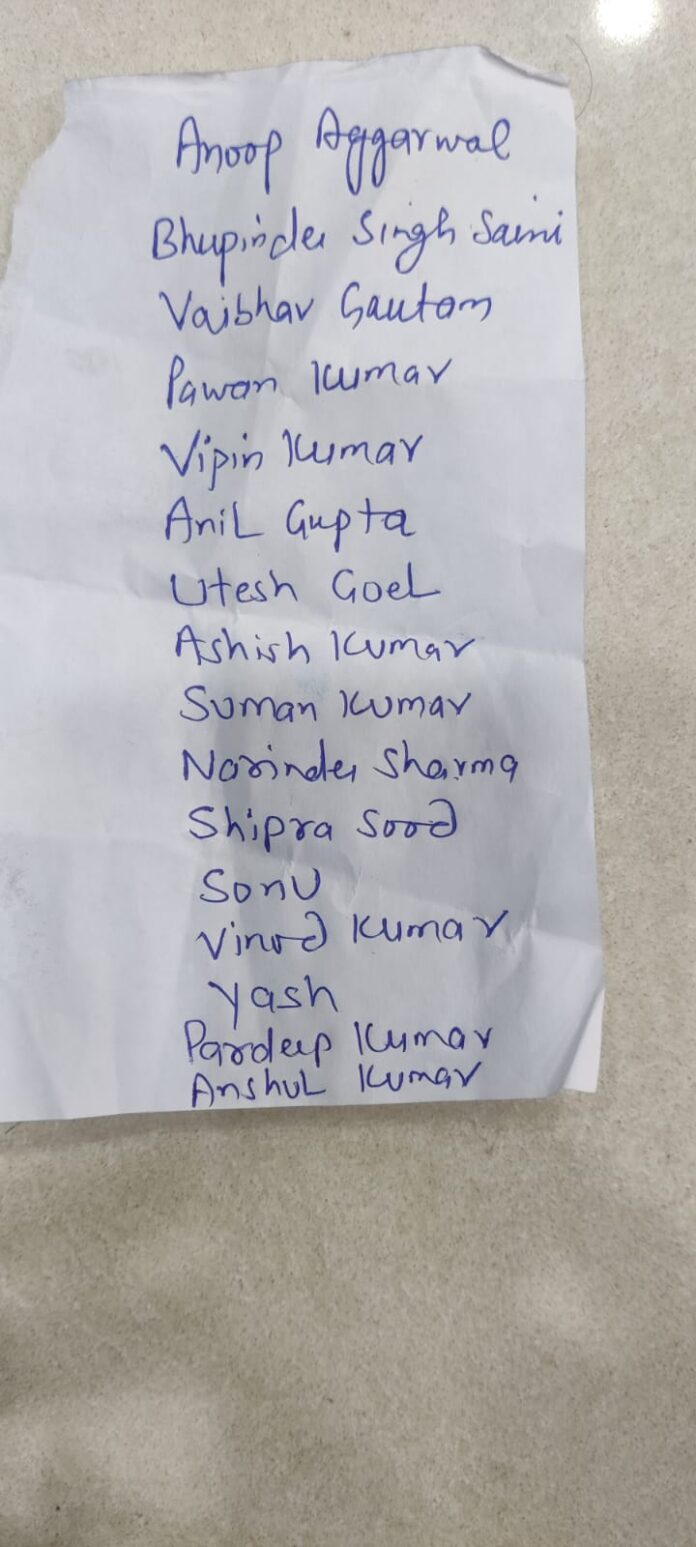 Anoop Aggarwal
Bhupinder Singh Saini
Vaibhav Gautam
Pawan Kumar
Vipin Kumar
Anil Gupta
Utesh Goel
Ashish Kumar
Suman Kumar
Narinder Sharma
Shipra Sood
Sonu
Vinod Kumar
Yash
Pardeep Kumar
Anshul Kumar